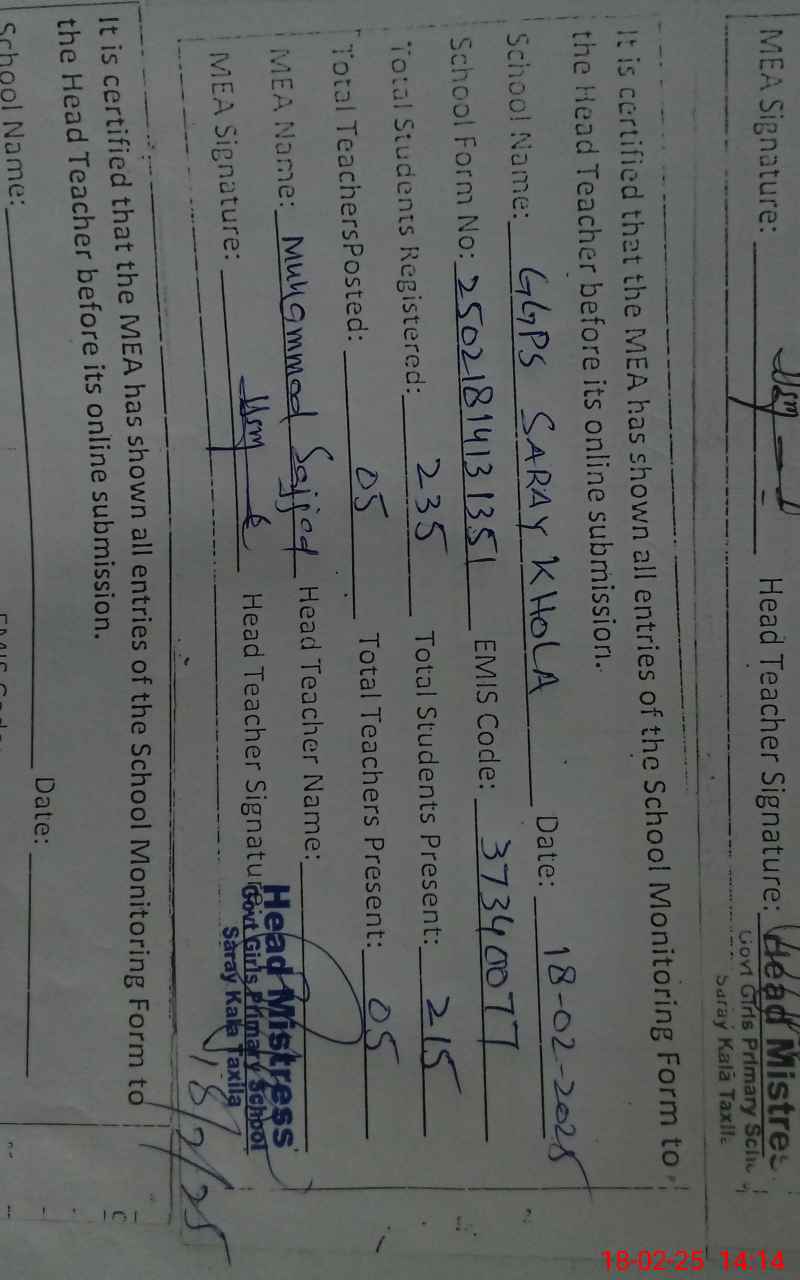 MEA Signature: Head Teacher Signature:
Head Mistres
Govt Girls Primary Sch
Saray Kala Taxil
It is certified that the MEA has shown all entries of the School Monitoring Form to
the Head Teacher before its online submission.
School Name: GGPS SARAY KHOLA Date: 18-02-2025
School Form No: 25021814131351 EMIS Code: 37340077
Total Students Registered: 235 Total Students Present: 215
Total TeachersPosted: 05 Total Teachers Present: 05
MEA Name: Muhammad Sajjad Head Teacher Name:
MEA Signature: Head Teacher Signature:
Head Mistress
Govt Girls Primary School
Saray Kala Taxila
18/2/25
It is certified that the MEA has shown all entries of the School Monitoring Form to
the Head Teacher before its online submission.
School Name: Date:
EMIS Code:
18-02-25 14:14